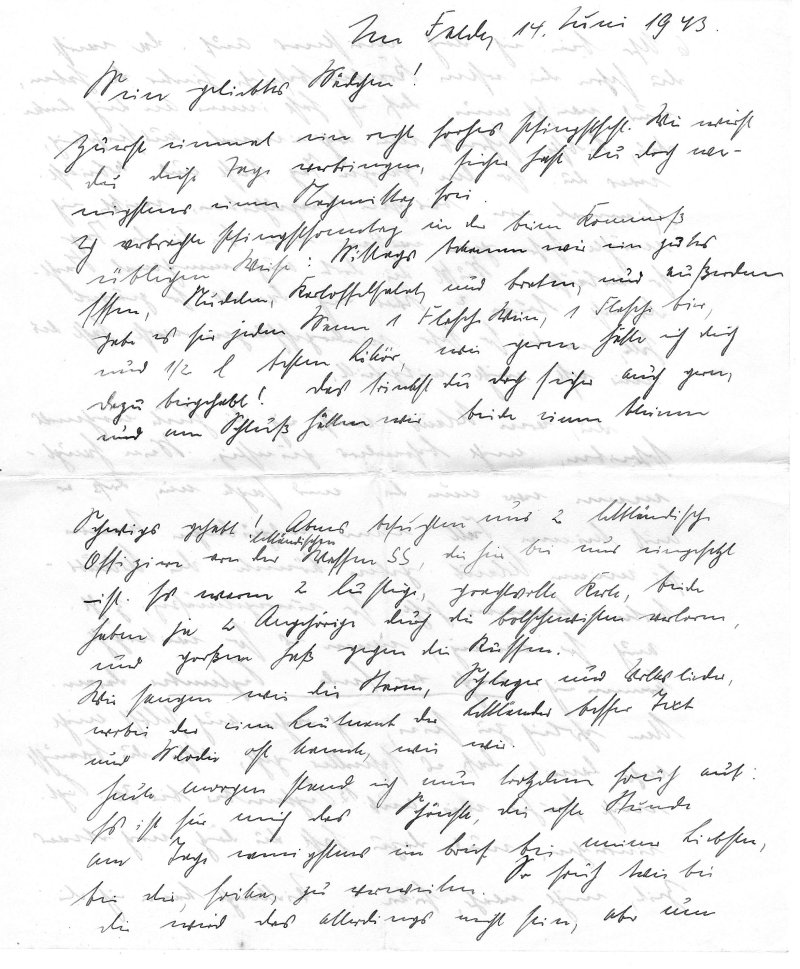 Im Felde, 14. Juni 1943.
Mein geliebtes Mädchen!
Zuerst einmal ein recht frohes Pfingstfest. Wie wirst
du diese Tage verbringen, sicher hast du doch we-
nigstens einen Nachmittag frei.
Ich verbrachte Pfingstsonntag in der beim Kommiß
üblichen Weise: Mittags bekamen wir ein gutes
Essen, Nudeln, Kartoffelsalat und Braten, und außerdem
gabs es für jeden Mann 1 Flasche Wein, 1 Flasche Bier,
und 1/2 l besten Likör, wie gerne hätte ich dich
dazu hiergehabt! Das trinkst du doch sicher auch gern,
und am Schluß hätten wir beide einen kleinen
Schwips gehabt! Abends besuchten uns 2 lettländische
Offiziere von der lettländischen Waffen SS die hier bei uns eingesetzt
ist. Es waren 2 lustige, prachtvolle Kerle, beide
haben je 2 Angehörige durch die Bolschewisten verloren,
und großen Haß gegen die Russen.
Wir sangen wie die Stare, Schlager und Volkslieder,
wobei der eine Leutnant der Lettländer besser Text
und Melodie oft kannte, wie wir.
Heute morgen stand ich nun trotzdem früh auf:
Es ist für mich das Schönste, die erste Stunde
am Tage wenigstens im Brief bei meiner Liebsten,
bei dir Erika, zu verweilen. So früh wie bei
dir wird das allerdings nicht sein, aber um